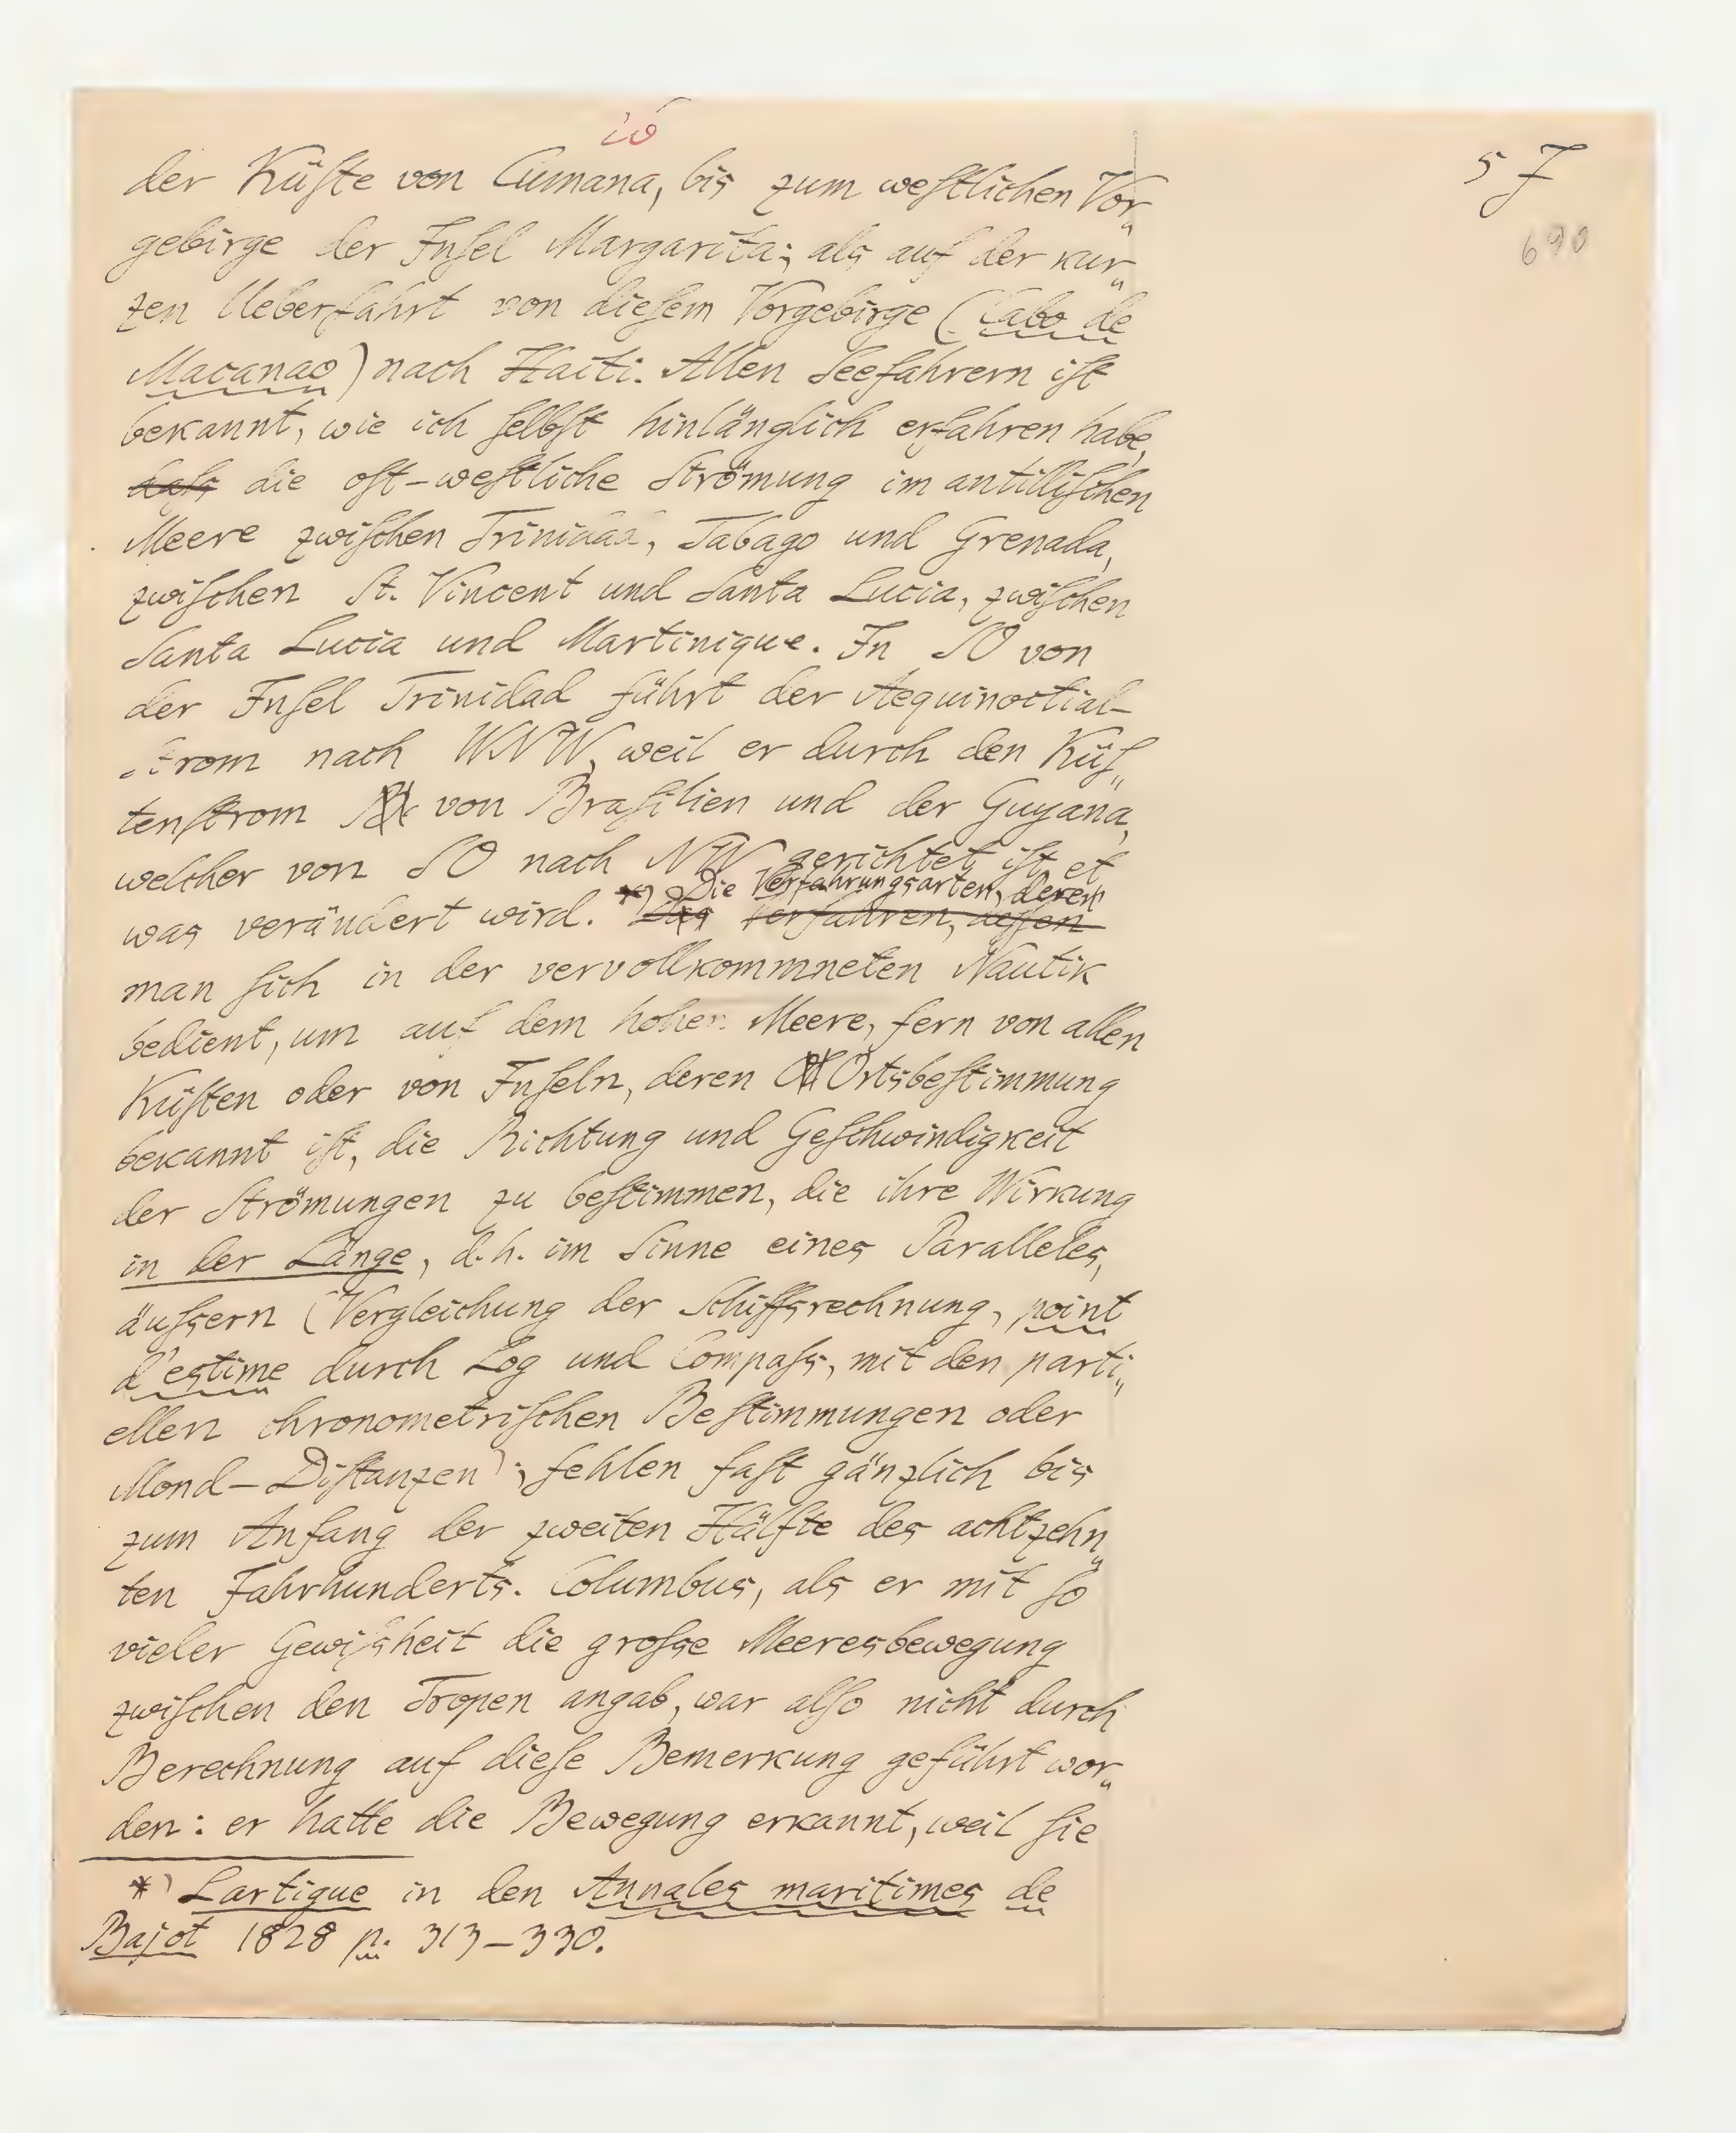 26
5 J
690
der Küſte von Cumana, bis zum weſtlichen Vor„
gebirge der Inſel Margarita; als auf der kur„
zen Ueberfahrt von dieſem Vorgebirge (Cabo de
Macanao) nach Haiti. Allen Seefahrern iſt
bekannt, wie ich ſelbſt hinlänglich erfahren habe,
daſs die oſt-weſtliche Strömung im antilliſchen
Meere zwiſchen Trinidad, Tabago und Grenada,
zwiſchen St. Vincent und Santa Lucia, zwiſchen
Santa Lucia und Martinique. In SO von
der Inſel Trinidad führt der Aequinoctial-
Strom nach WNW, weil er durch den Küſ„
tenſtrom von Braſilien und der Guyana,
welcher von SO nach NW gerichtet iſt et
was verändert wird. *) Die Verfahrungsarten, deren
Das Verfahren, deſſen
man ſich in der vervollkommneten Nautik
bedient, um auf dem hohen Meere, fern von allen
Küſten oder von Inſeln, deren Ortsbeſtimmung
bekannt iſt, die Richtung und Geſchwindigkeit
der Strömungen zu beſtimmen, die ihre Wirkung
in der Länge, d.h. im Sinne eines Paralleles,
äuſsern (Vergleichung der Schiffsrechnung, point
d'estime durch Log und Compaſs, mit den parti„
ellen chronometriſchen Beſtimmungen oder
Mond-Diſtanzen); fehlen faſt gänzlich bis
zum Anfang der zweiten Hälfte des achtzehn„
ten Jahrhunderts. Columbus, als er mit ſo
vieler Gewiſsheit die groſse Meeresbewegung
zwiſchen den Tropen angab, war alſo nicht durch
Berechnung auf dieſe Bemerkung geführt wor„
den: er hatte die Bewegung erkannt, weil ſie
*) Lartigue in den Annales maritimes de
Bajot 1828 p. 313-330.